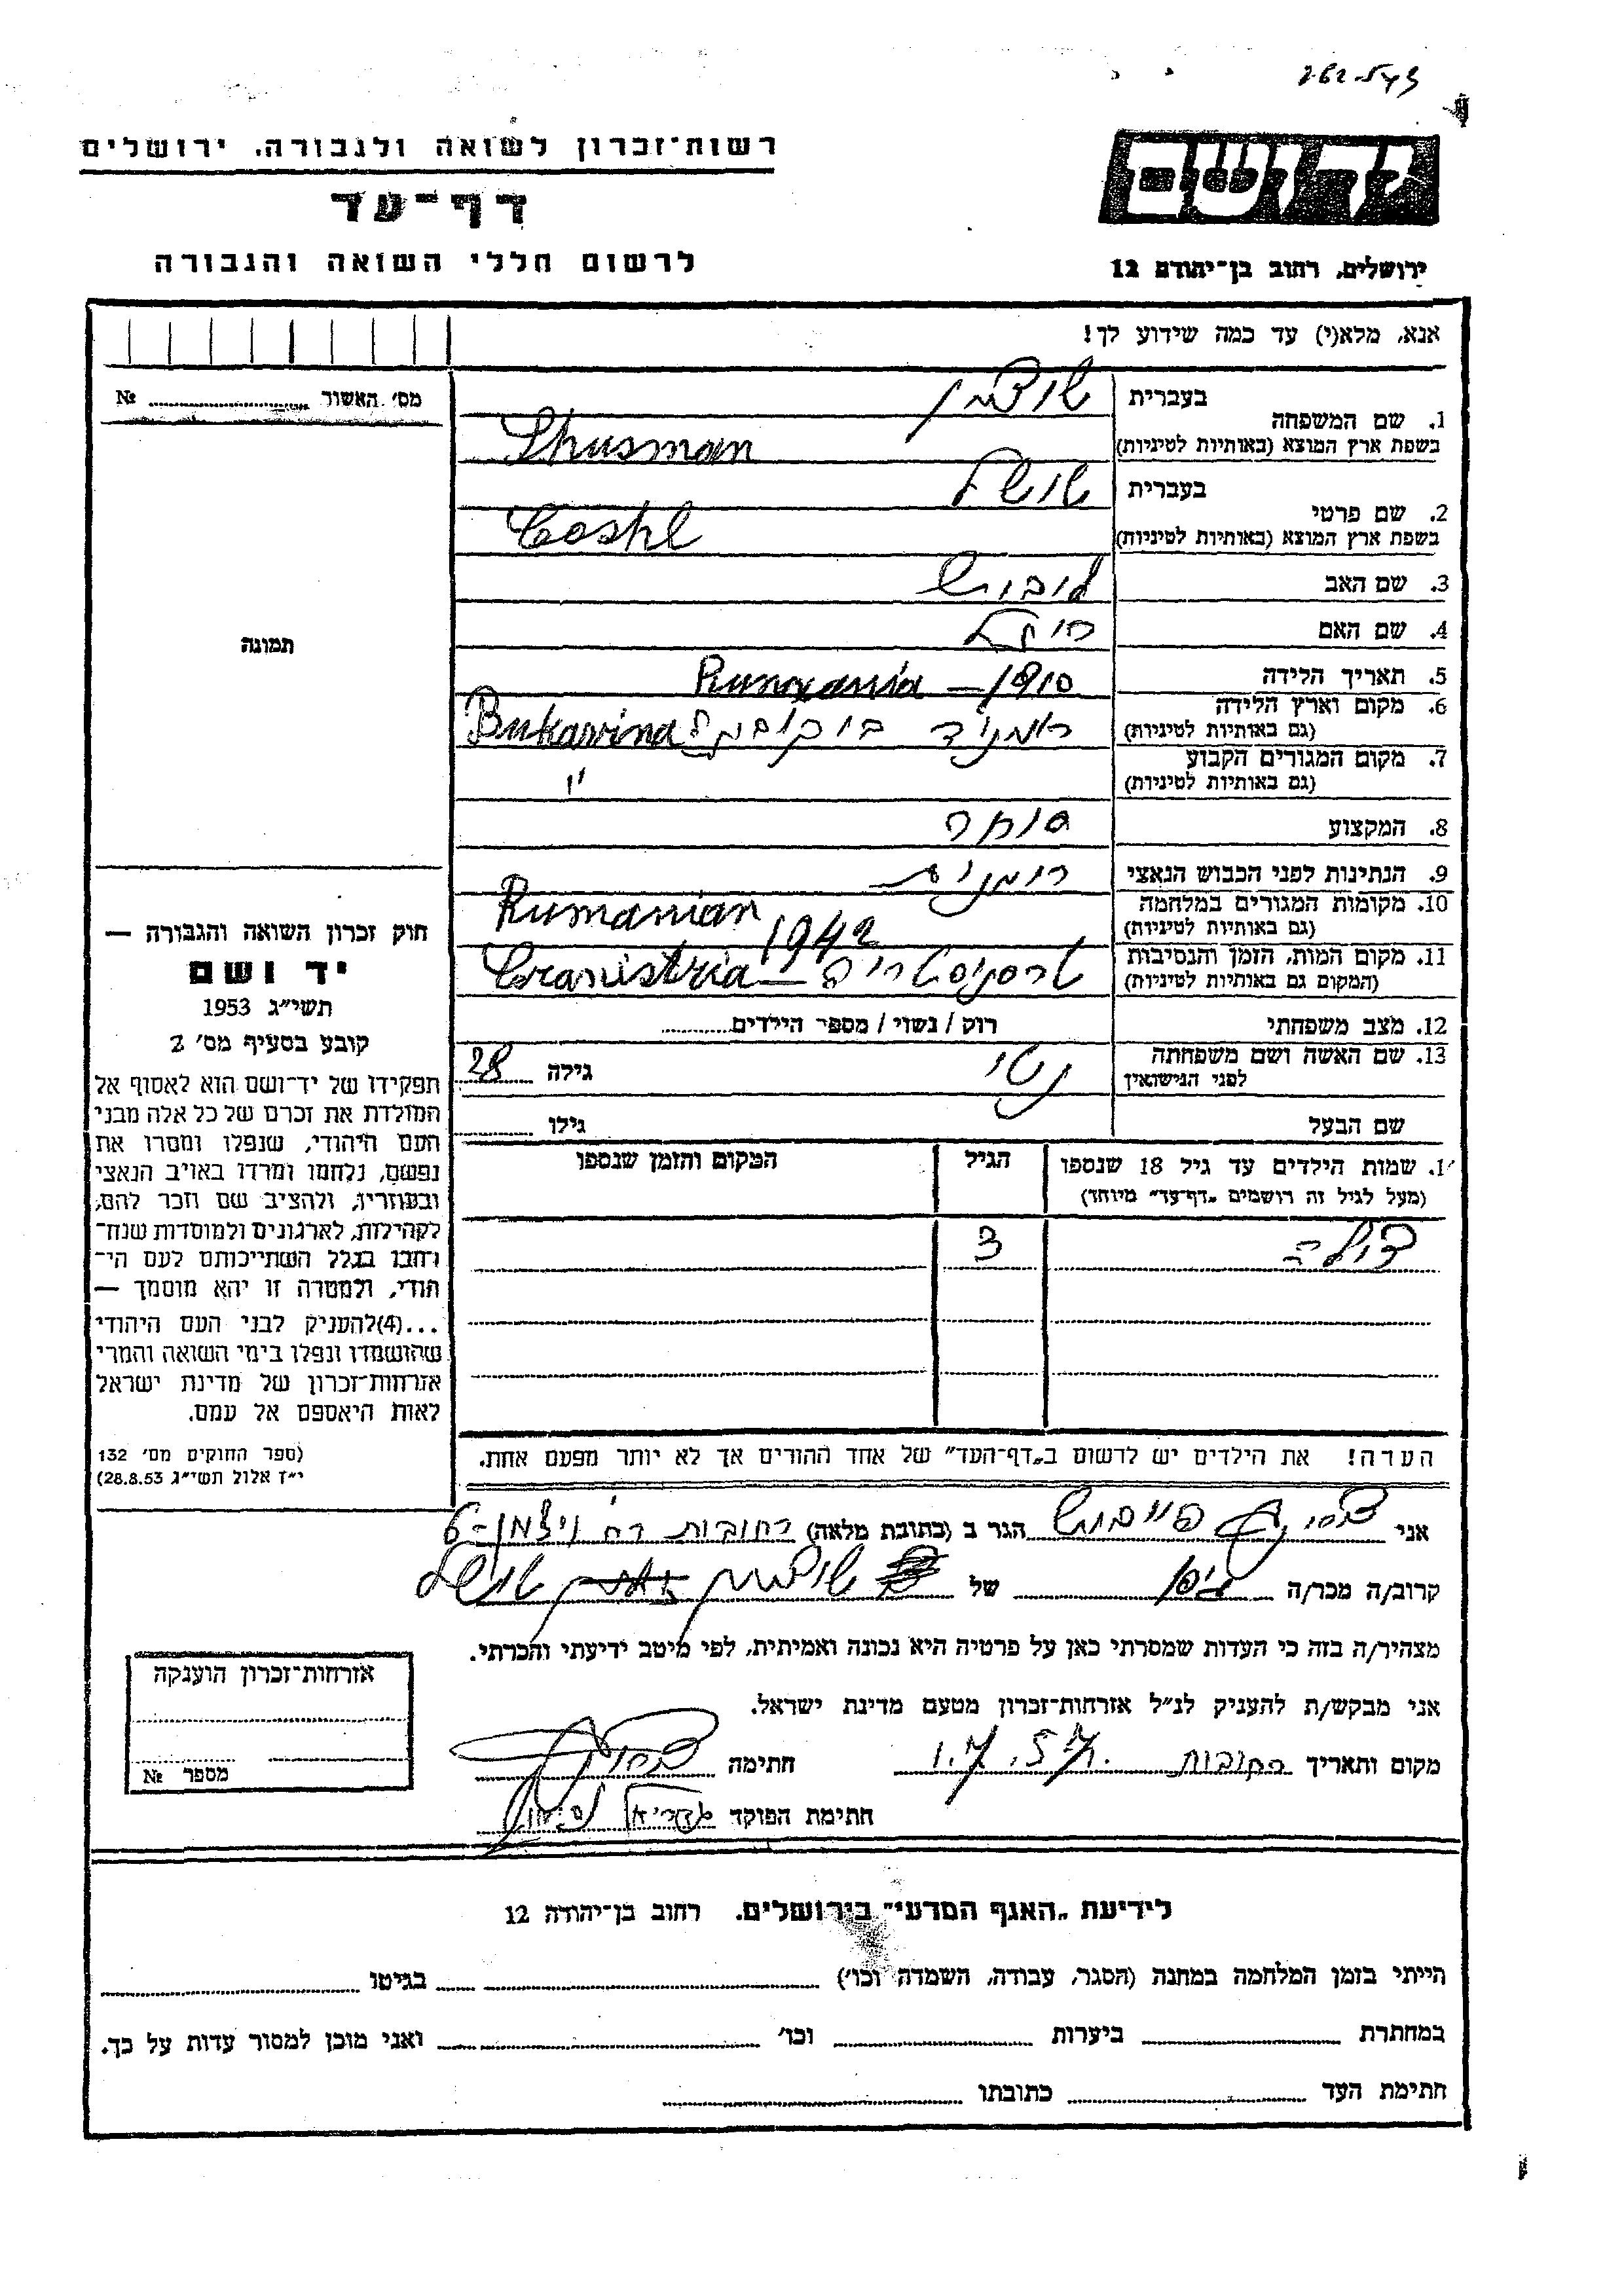 רשות־זכרון לשואה ולגבורה, ירושלים
דף־עד
לרשום חללי השואה והגבורה
יד ושם
ירושלים, רחוב בן־יהודה 12
אנא, מלא(י) עד כמה שידוע לך!
מס׳ האשור № 
תמונה
1. שם המשפחה
בעברית
בשפת ארץ המוצא (באותיות לטיניות) Shusman
2. שם פרטי
בעברית
בשפת ארץ המוצא (באותיות לטיניות)
3. שם האב ליבוש
4. שם האם רחל
5. תאריך הלידה 1910 — Rumxania
6. מקום וארץ הלידה
(גם באותיות לטיניות) בוקובינה Bukawina
7. מקום המגורים הקבוע
(גם באותיות לטיניות) "
8. המקצוע סוחר
9. הנתינות לפני הכבוש הנאצי רומנית
10. מקומות המגורים במלחמה
(גם באותיות לטיניות) Rumanian
11. מקום המות, הזמן והנסיבות
(המקום גם באותיות לטיניות) טרסניסטריה — 1942 Tranistria
12. מצב משפחתי רוק / נשוי / מספר הילדים
13. שם האשה ושם משפחתה
לפני הנישואין נטי גילה 28
שם הבעל גילו
1. שמות הילדים עד גיל 18 שנספו
(מעל לגיל זה רושמים „דף־עד” מיוחד)
הגיל
המקום והזמן שנספו
3
הערה! את הילדים יש לרשום ב„דף־העד” של אחד ההורים אך לא יותר מפעם אחת.
חוק זכרון השואה והגבורה —
יד ושם
תשי״ג 1953
קובע בסעיף מס׳ 2
תפקידו של יד־ושם הוא לאסוף אל
המולדת את זכרם של כל אלה מבני
העם היהודי, שנפלו ומסרו את
נפשם, נלחמו ומרדו באויב הנאצי
ובעוזריו, ולהציב שם וזכר להם,
לקהילות, לארגונים ולמוסדות שנח־
רבו בגלל השתייכותם לעם הי־
הודי, ולמטרה זו יהא מוסמך —
...(4) להעניק לבני העם היהודי
שהושמדו ונפלו בימי השואה והמרי
אזרחות־זכרון של מדינת ישראל
לאות היאספם אל עמם.
(ספר החוקים מס׳ 132
י״ז אלול תשי״ג 28.8.53)
אני פייבוש הגר ב (כתובת מלאה) רחובות רח׳ ויצמן 6
קרוב/ה מכר/ה גיסו של
מצהיר/ה בזה כי העדות שמסרתי כאן על פרטיה היא נכונה ואמיתית, לפי מיטב ידיעתי והכרתי.
אני מבקש/ת להעניק לנ״ל אזרחות־זכרון מטעם מדינת ישראל.
מקום ותאריך רחובות חתימה
חתימת הפוקד
אזרחות־זכרון הוענקה
מספר №
לידיעת „האגף המדעי” בירושלים. רחוב בן־יהודה 12
הייתי בזמן המלחמה במחנה (הסגר, עבודה, השמדה וכו׳) בגיטו
במחתרת ביערות וכו׳ ואני מוכן למסור עדות על כך.
חתימת העד כתובתו